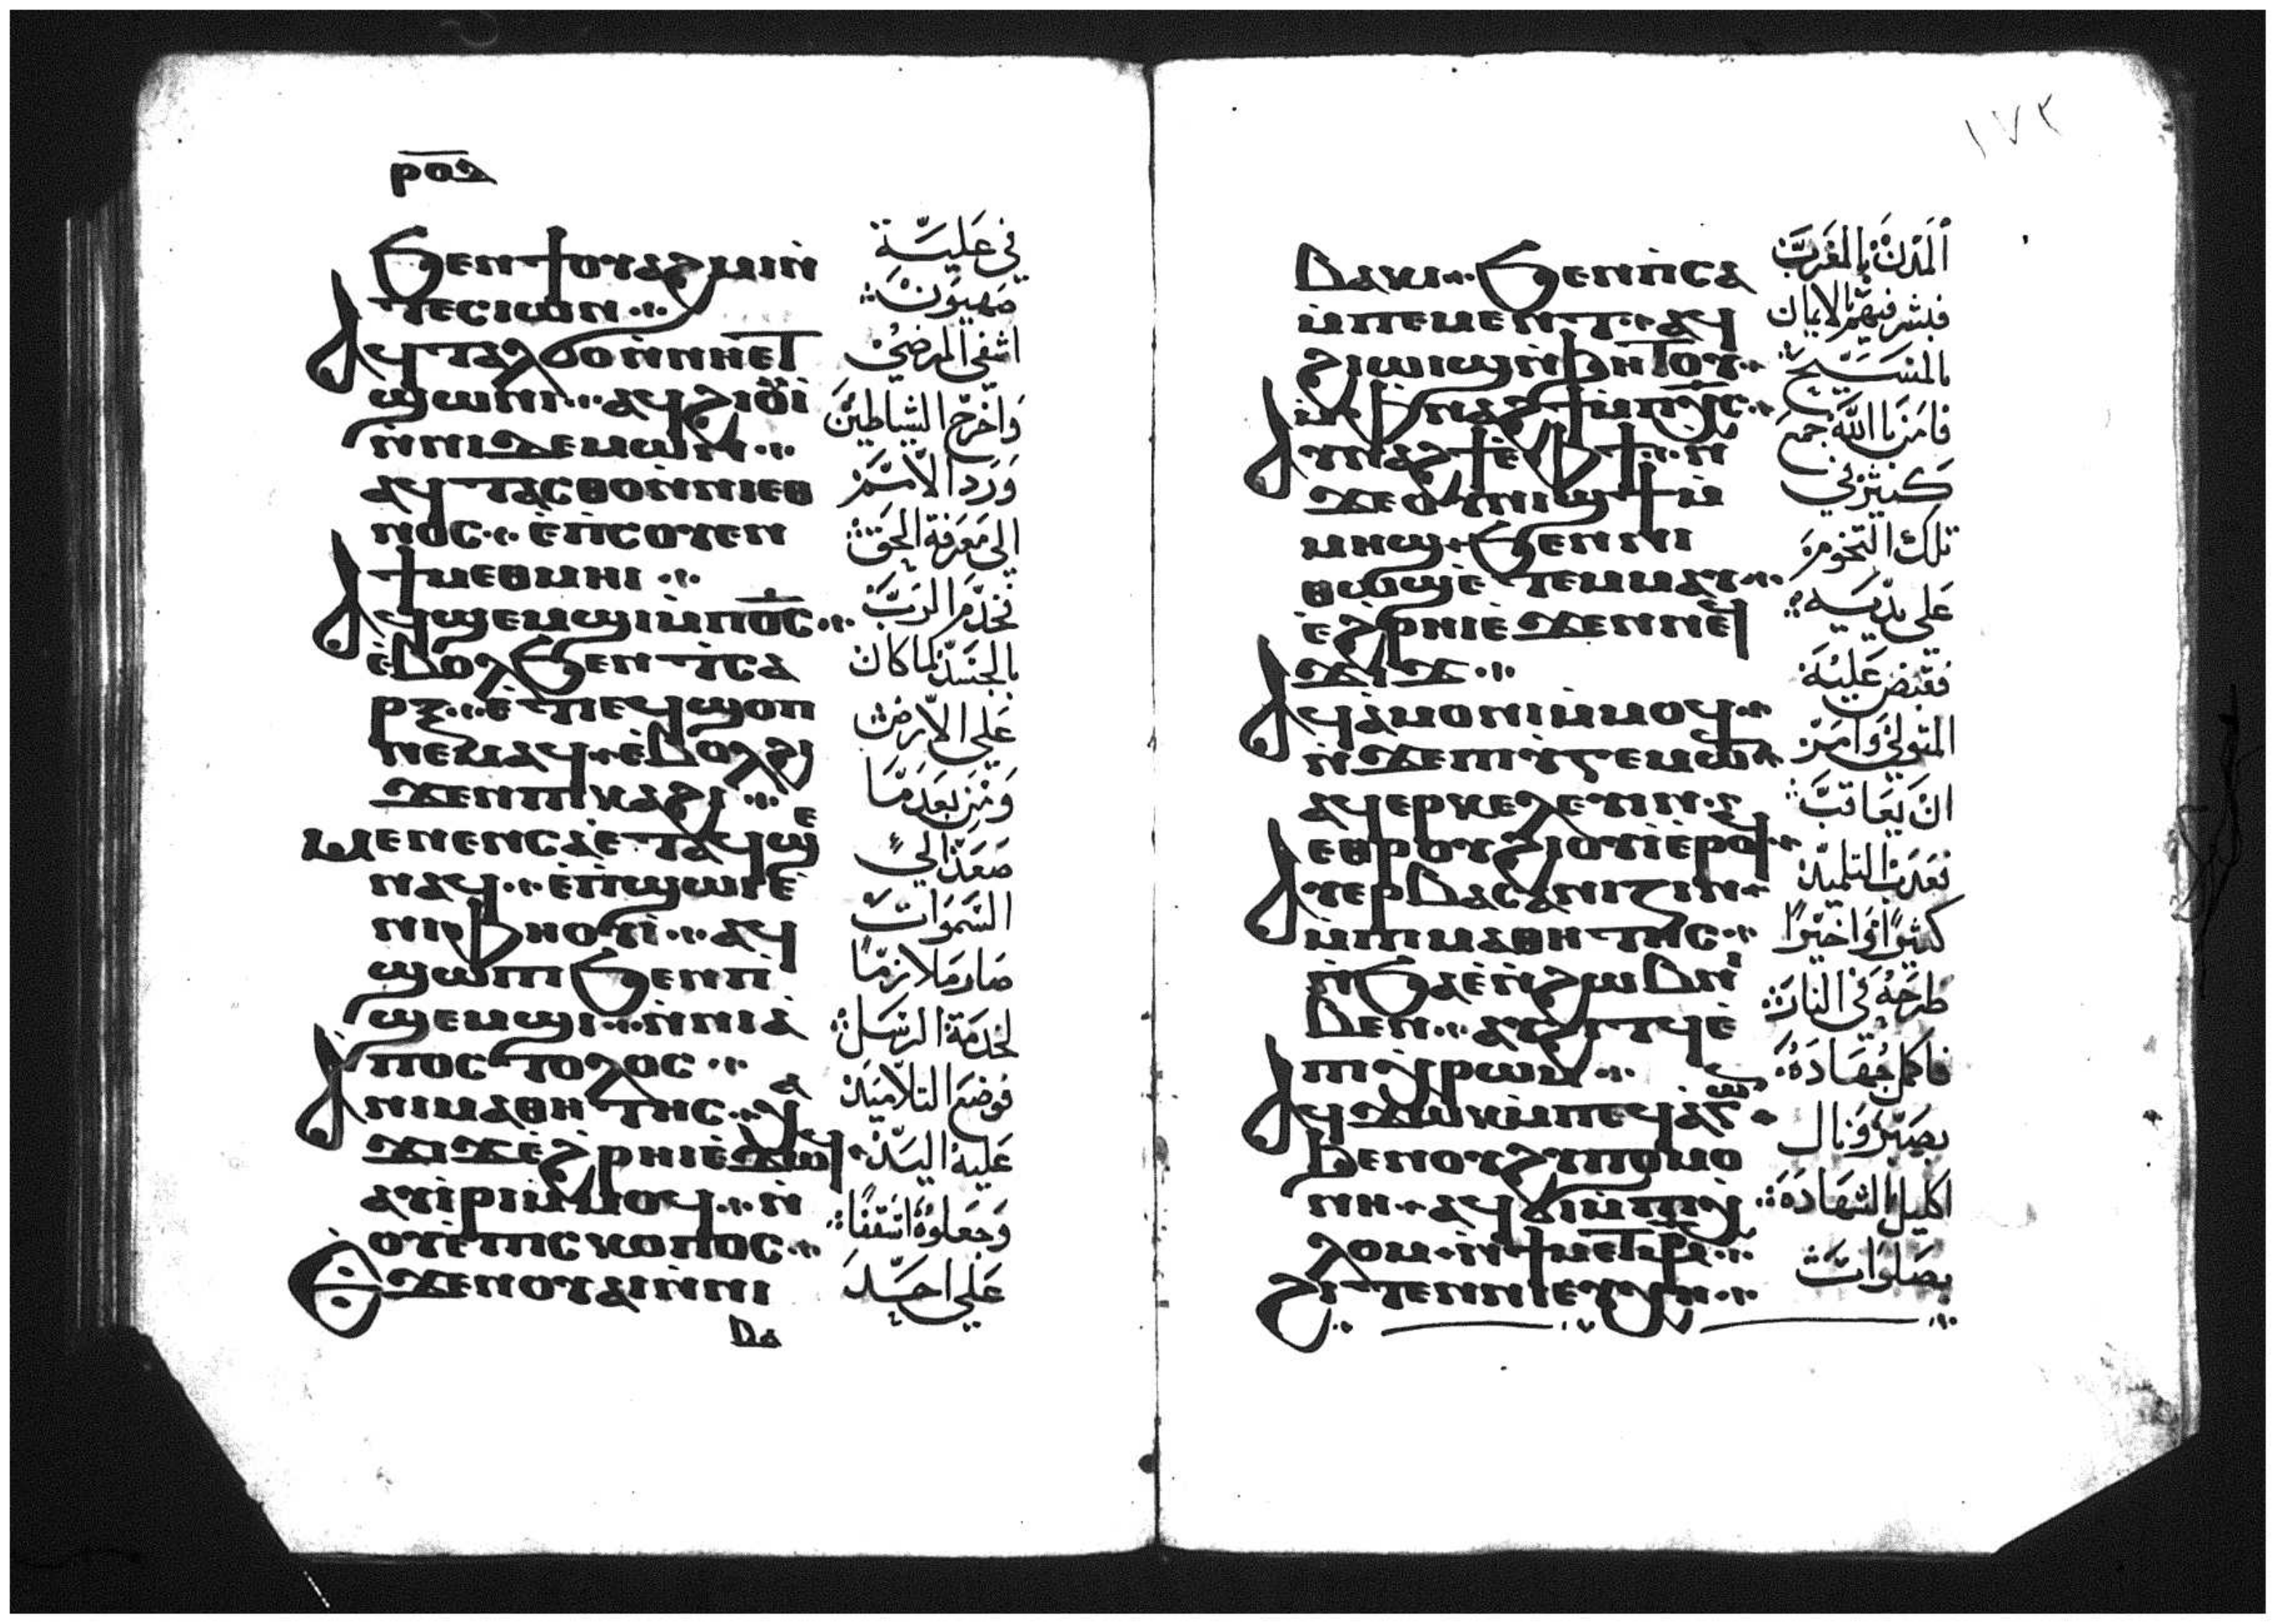 ϧⲉⲛϯⲟⲩⲁϩⲙⲓⲛ̀
ⲧⲉⲥⲓⲱⲛ
ⲁϥⲧⲁⲗϭⲟⲛ̀ⲛⲏⲉⲧ
ϣⲱⲛⲓ ⲁϥϩⲓⲟⲩⲓ̀
ⲛ̀ⲛⲓⲇⲉⲙⲱⲛ
ⲁϥⲧⲁⲥⲑⲟⲛ̀ⲛⲓⲉⲑ
ⲛⲟⲥ ⲉ̀ⲡⲥⲟⲩⲉⲛ
ϯⲙⲉⲑⲙⲏⲓ
ⲁϥϣⲉⲙϣⲓⲙ̀ⲡⲟ̅ⲥ̅
ⲉ̀ⲃⲟⲗϧⲉⲛⲧⲥⲁ
ⲣⲝ ⲉ̀ⲧⲓⲉϥϣⲟⲡ
ⲛⲉⲙⲁϥ ⲉ̀ⲃⲟⲗϩⲓ
ϫⲉⲛⲡⲓⲕⲁϩⲓ
ⲙⲉⲛⲉⲛⲥⲁⲉ̀ⲧⲁϥϣⲉ
ⲛⲁϥ ⲉ̀ⲡϣⲱⲓⲉ̀
ⲛⲓⲫⲏⲟⲩⲓ̀ ⲁϥ
ϣⲱⲡⲓ ϧⲉⲛⲡⲓ
ϣⲉⲙϣⲓ ⲛ̀ⲛⲓⲁ̀
ⲡⲟⲥⲧⲟⲗⲟⲥ
ⲁⲛⲓⲙⲁⲑⲏⲧⲏⲥ ⲭⲁ
ϫⲓϫⲉ̀ϩⲣⲏⲓⲉ̀ϫⲱϥ
ⲁⲩⲓ̀ⲣⲓⲙ̀ⲙⲟϥ ⲛ̀
ⲟⲩⲉ̀ⲡⲓⲥⲕⲟⲡⲟⲥ
ⲉ̀ϫⲉⲛⲟⲩⲁⲓⲛ̀ⲛⲓ
ⲃⲁ
في علية
صهيون
اشفي المرضي
واخرج الشياطين
ورد الامم
الي معرفة الحق
تخدم الرب
بالجسد كما كان
علي الارض
ومن بعد ما
صعد الي
السموات
صار ملازما
لخدمة الرسل
فوضع التلاميذ
عليه اليد
وجعلوه اسقفا
علي احد
١٧٣
ⲃⲁⲕⲓ ϧⲉⲛⲡ̀ⲥⲁ
ⲙ̀ⲡⲉⲙⲉⲛⲧ ⲁϥ
ϩⲓⲱⲓϣⲛ̀ϧⲏⲧⲟⲩ
ⲙ̀ⲫⲛⲁϩϯⲙ̀ⲡⲭ̅ⲥ̅
ⲁⲩⲛⲁϩϯⲉ̀ⲫϯ ⲛ̀
ϫⲉⲟⲩⲛⲓϣϯⲙ̀
ⲙⲏϣ ϧⲉⲛⲛⲓ
ⲑⲱϣⲉ̀ⲧⲉⲙⲙⲁⲩ
ⲉ̀ϩⲣⲏⲓⲉ̀ϫⲉⲛⲛⲉϥ
ϫⲓϫ
ⲁϥⲁ̀ⲙⲟⲛⲓⲙ̀ⲙⲟϥ
ⲛ̀ϫⲉⲡⲓϩⲩⲅⲉⲙⲱⲛ
ⲁϥⲉⲣⲕⲉⲗⲉⲩⲓⲛ
ⲉⲑⲣⲟⲩϩⲓⲟⲩⲓⲉ̀ⲣⲟϥ
ⲁⲩⲉⲣⲃⲁⲥⲁⲛⲓⲍⲓⲛ
ⲙ̀ⲡⲓⲙⲁⲑⲏⲧⲏⲥ
ⲛ̀ϧⲁⲉ̀ⲛ̀ϩⲱⲃⲛⲓ
ⲃⲉⲛ ⲁⲩϩⲓⲧϥⲉ̀
ⲡⲓⲭⲣⲱⲙ
ϧⲉⲛⲟⲩϩⲩⲡⲟⲙⲟ
ⲛⲏ ⲁϥϭⲓⲙ̀ⲡⲓⲭ
ⲗⲟⲙ ⲛ̀ϯⲙⲉⲧⲙ̅ⲣ̅
ϩⲓⲧⲉⲛⲛⲓⲉⲩⲭⲏ
المدن بالمغرب
فبشر فيهم بالايمان
بالمسيح
فامن بالله جمع
كثير في
تلك التخومة
علي يديه
فقبض عليه
المتولي وامر
ان يعاقب
فعذب التلميذ
كثيرا واخيرا
طرحه في النار
فاكمل جهاده
بصبر ونال
اكليل الشهادة
بصلوات